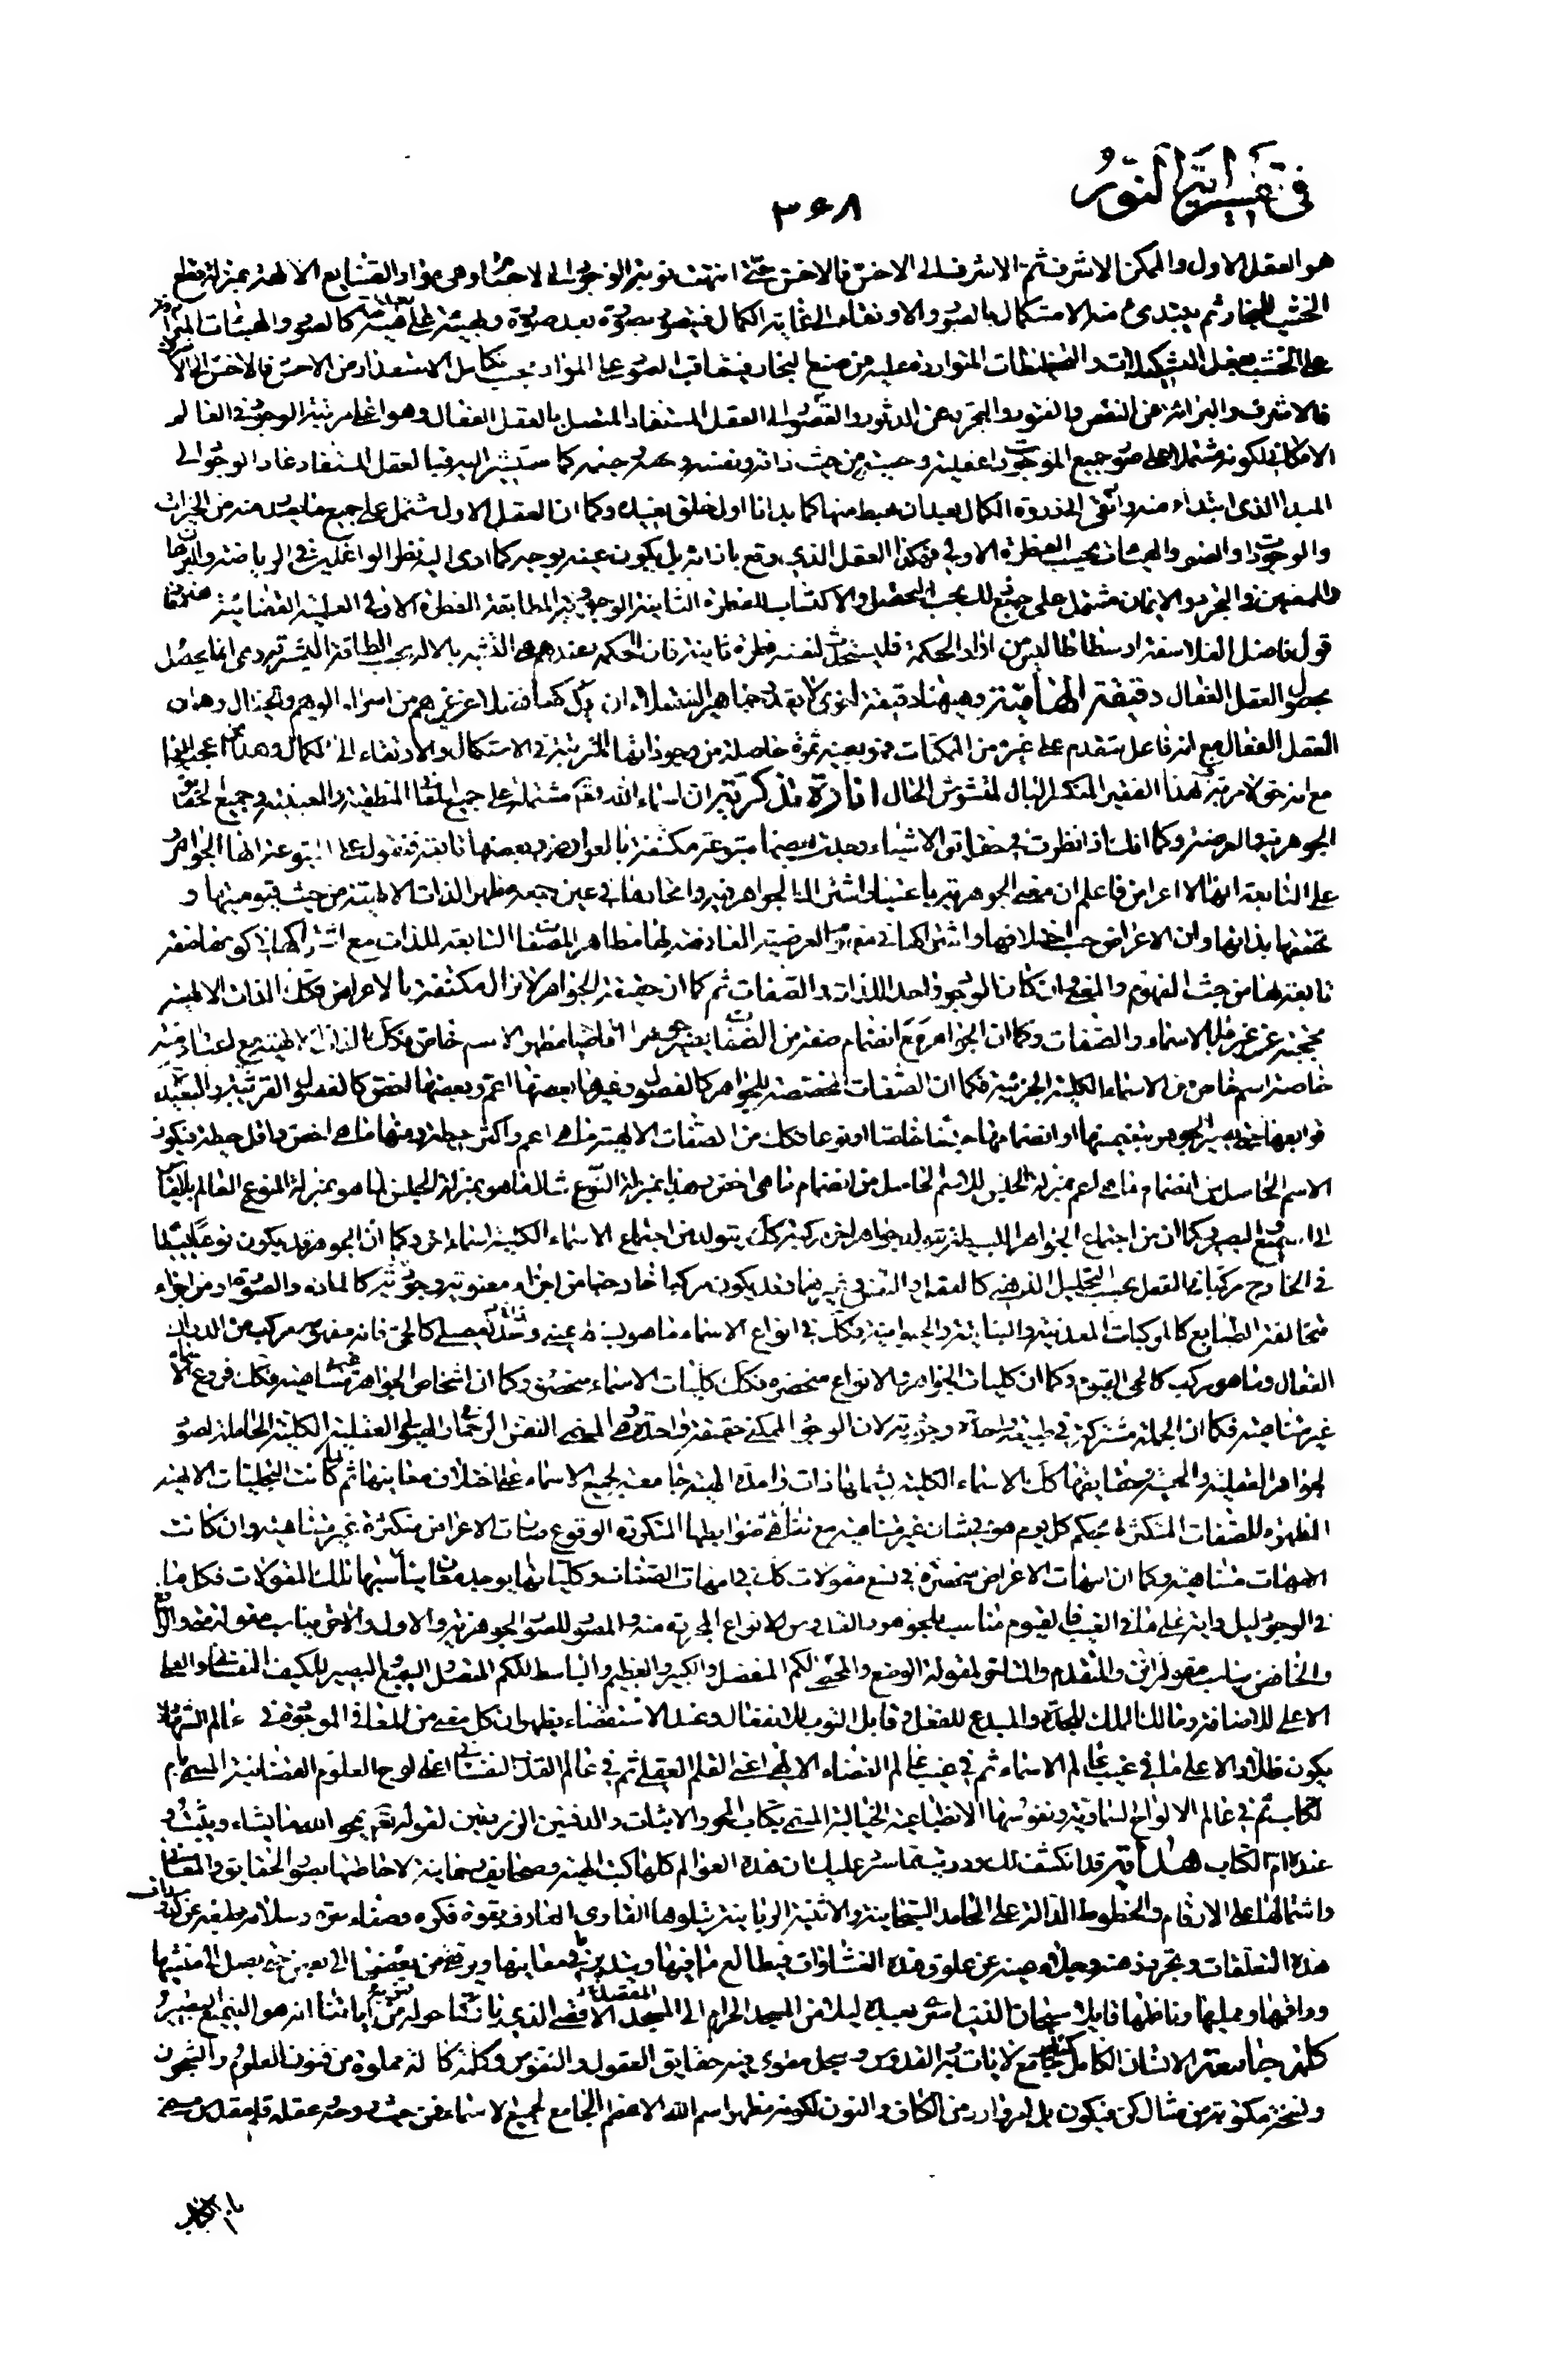 في تفسير آية النور
٣٦٨
هو العقل الاول والممكن الاشرف ثم الاشرف الى الاخس فالاخس حتى انتهت نوبة الوجود الى الاخس وهى مواد القشايع الا لهذ بمنزلة قطع
الخشب للنجار ثم يبتدئ منه الاستكمال بالصور والارتقاء الى غاية الكمال فيتصور بصورة بعد صورة وبهيئة على هيئة كالصور والهيئات
على الخشب بعض التشكيلات والتخطيطات المتواردة عليه من صنع النجار فيتعاقب الصور على المواد بحسب تكامل الاستعداد من الاخس فالاخس الى
فالاشرف والبرائة عن النقص والفتور والتجرد عن الدثور والقصور الى العقل المستفاد المتصل بالعقل الفعال وهو اعلى مرتبة الوجود في العالم
الامكان لكونه مشتملا على صور جميع الموجودات عقلية وحسية من حيث ذاته ونفسه و كما ستشير اليه فبالعقل المستفاد عاد الوجود الى
المبدا الذى ابتداء منه وارتقى الى ذروة الكمال بعد ان هبط منها كما بدانا اول خلق نعيده وكما ان العقل الاول مشتمل على جميع ما يصدر منه من الخيرات
والوجودات والصور والهيئات بحسب الفطرة الاولى فهكذا العقل الذي وقع بازائه بل يكون عينه بوجه كما ادى اليه نظر الواغلين في الرياضة والبرهان
والممعنين في التجرد والايمان مشتمل على جميع ذلك بحسب التحصيل والاكتساب للفطرة الثانية الوجودية المطابقة للفطرة الاولى العلمية القضائية
قول فاضل الفلاسفة ارسطاطاليس من اراد الحكمة فليستحدث لنفسه فطرة ثانية فان الحكمة عندهم هى التشبه بالاله بحسب الطاقة البشرية وهى انما يحصل
بحصول العقل الفعال دقيقة الهامية وههنا دقيقة اخرى لا يعرفها جماهير الفضلاء ان يدركها فضلا عن غيرهم من اسراء الوهم والخيال وهى ان
العقل الفعال مع انه فاعل متقدم على غيره من الممكنات فهو بعينه ثمرة حاصلة من وجود المترتبة في الاستكمال والارتقاء الى الكمال وهذا من اعجب
مع انه حق لا مرية فيه لهذا الفقير المنكسر البال المشوش الحال انارة تذكرية ان اسماء الله تعالى مشتملة على جميع المنطقية والعينية وجميع الحقائق
الجوهرية والعرضية وكما انك اذا نظرت في حقائق الاشياء وجدت بعضها متبوعة مكتنفة بالعوارض وبعضها تابعة فتقول على المتبوعة انها الجواهر
على التابعة انها الاعراض فاعلم ان معنى الجوهرية باعتبار اشتراك الجواهر فيه واتحادها في عين جمعه مظهر الذات الالهية من حيث قيوميتها و
تحققها بذاتها وان الاعراض حسب اختلافها واشتراكها في مفهوم العرضية العارضة لها مظاهر الصفات التابعة للذات مع اشتراكها في كونها صفة
تابعة لها من حيث المفهوم والمعنى وان كان الوجود واحدا للذات والصفات ثم كما ان حقيقة الجواهر لا تزال مكتنفة بالاعراض فكذلك الذات الالهية
محتجبة عن غيرها بالاسماء والصفات وكما ان الجواهر مع انضمام صفة من الصفات يصير جوهرا خاصا مظهرا لاسم خاص فكذلك الذات الالهية مع اعتبار صفة
خاصة اسم خاص من الاسماء الكلية الجزئية فكما ان الصفات المختصة للجواهر كالفصول وغيرها بعضها اعم وبعضها اخص كالفصول القريبة والبعيدة
توابعها حتى يصير الجوهر بتقيدها او انضمامها جنسا خاصا او نوعا فكذلك من الصفات الالهية ما هى اعم واكثر حيطة ومنها ما هى اخص واقل حيطة فيكون
الاسم الحاصل من انضمام ما هى اعم بمنزلة الجنس للاسم الحاصل من انضمام ما هى اخص وهذا بمنزلة النوع مثال ما هو بمنزلة الجنس لما هو بمنزلة النوع العالم بالقياس
الى السميع البصير وكما ان من اجتماع الجواهر البسيطة يتولد جواهر اخر مركبة كذلك يتولد من اجتماع الاسماء الكلية اسماء اخر وكما ان الجوهر قد يكون نوعا بسيطا
في الخارج مركبا في العقل بحسب التحليل الذهنى كالعقل والنفس وقد يكون مركبا خارجيا من اجزاء معنوية وجودية كالمادة والصورة او من اجزاء
متخالفة الطبايع كالمركبات المعدنية والنباتية والحيوانية فكذلك في انواع الاسماء ما هو بسيط عينه وحده تفصيلى كالحى فانه مفهومه مركب من الدراك
الفعال وما هو مركب كالحى القيوم وكما ان كليات الجواهر والانواع منحصرة فكذلك كليات الاسماء منحصرة وكما ان اشخاص الجواهر غير متناهية فكذلك فروع الاسماء
غير متناهية فكما ان الجملة مشتركة في طبيعة واحدة وجودية لان الوجود الممكنى حقيقة واحدة هى المسمى النفس الرحمانى والهيولى العقلية الكلية الحاملة لصور
الجواهر العقلية والحسية وحقايقها كذلك الاسماء الكلية يشملها ذات واحدة الهية جامعة لجميع الاسماء على اختلاف معانيها ثم كما كانت التجليات الالهية
المظهرة للصفات المتكثرة بحكم كل يوم هو في شان غير متناهية مع تناهى ضوابطها المتكررة الوقوع صارت الاعراض متكثرة غير متناهية وان كانت
الامهات متناهية وكما ان امهات الاعراض منحصرة في تسع مقولات كذلك في امهات الصفات وكلياتها يوجد معان يناسبها تلك المقولات فكل ما
في الوجود دليل واية على ما في الغيب فالقيوم مناسب للجوهر والقدوس للانواع المجردة منه والمصور للصور الجوهرية والاول والاخر يناسب مقولة متى والرافع
والخافض يناسب مقولة اين والمتقدم والمتاخر لمقولة الوضع والمحصى للكم المنفصل والكبير والعظيم والباسط للكم المتصل والسميع البصير للكيف النفسانى والعلى
الاعلى للاضافة ومالك الملك للجدة والمبدع للفعل وقابل التوب للانفعال وعند الاستقصاء يظهر ان كل معنى من المعانى الموجودة في عالم الشهادة
يكون ظلا دالا على ما في غيب عالم الاسماء ثم في غيب عالم القضاء الالهى اعنى القلم العقلى ثم في عالم القدر النفسانى اعنى لوح العلوم القضائية المسمى بام
الكتاب ثم في عالم الالواح السماوية ونفوسها الانطباعية الخيالية المسمى بكتاب المحو والاثبات والدفتين الزمردتين لقوله تعالى يمحو الله ما يشاء ويثبت و
عنده ام الكتاب هداية قد انكشف لك ودريت بما سر عليك ان هذه العوالم كلها كتب الهية وصحايف رحمانية لاحاطتها بصور الحقايق والمعانى
واشتمالها على الارقام والخطوط الدالة على المحامد السبحانية والاثنية الربانية يتلوها القارى العارف بقوة فكره وصفاء سره وسلامة طبعه عن
هذه التعلقات وتجريد ذهنه وجلاء عينه عن علوق هذه الغشاوات فيطالع ما فيها ويتدبر في معانيها ويرتقى من بعضها الى بعض حتى يصل الى منشيها
وراقمها ومميلها وناظمها قايلا سبحان الذى اسرى بعبده ليلا من المسجد الحرام الى المسجد الاقصى الذى باركنا حوله لنريه من اياتنا انه هو السميع البصير
كلمة جامعة الانسان الكامل كتاب جامع لايات ربه القدوس وسجل مطوى فيه حقايق العقول والنفوس وكلمة كاملة مملوة من فنون العلوم والشجون
ونسخة مكتوبة من مثال كن فيكون بل امر وارد من الكاف والنون لكونه مظهر اسم الله الاعظم الجامع لجميع الاسماء فمن حيث روحه وعقله